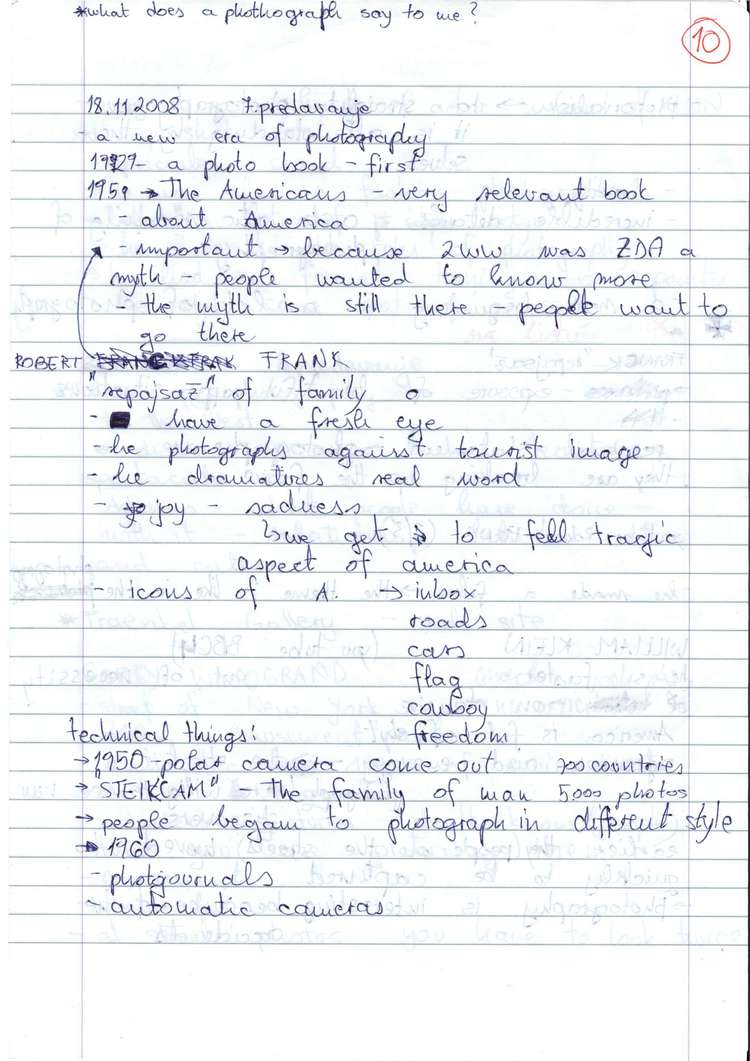 *what does a phothograph say to me?
10
18.11.2008 7. predavanje
- a new era of photography
1929 - a photo book - first
1959 → The Americans - very relevant book
- about America
- important → because 2ww was ZDA a
myth - people wanted to know more
- the myth is still there - people want to
go there
ROBERT FRANK
"repajsaž" of family
- have a fresh eye
- he photographs against tourist image
- he dramatizes real word
- joy - sadness
↳ we get to fell tragic
aspect of america
- icons of A. → inbox
roads
cars
flag
cowboy
freedom
technical things:
→ 1950 - polar camera come out 700 countries
→ "STEIKCAM" - The family of man 5000 photos
→ people began to photograph in different style
→ 1960
- photojournals
- automatic cameras